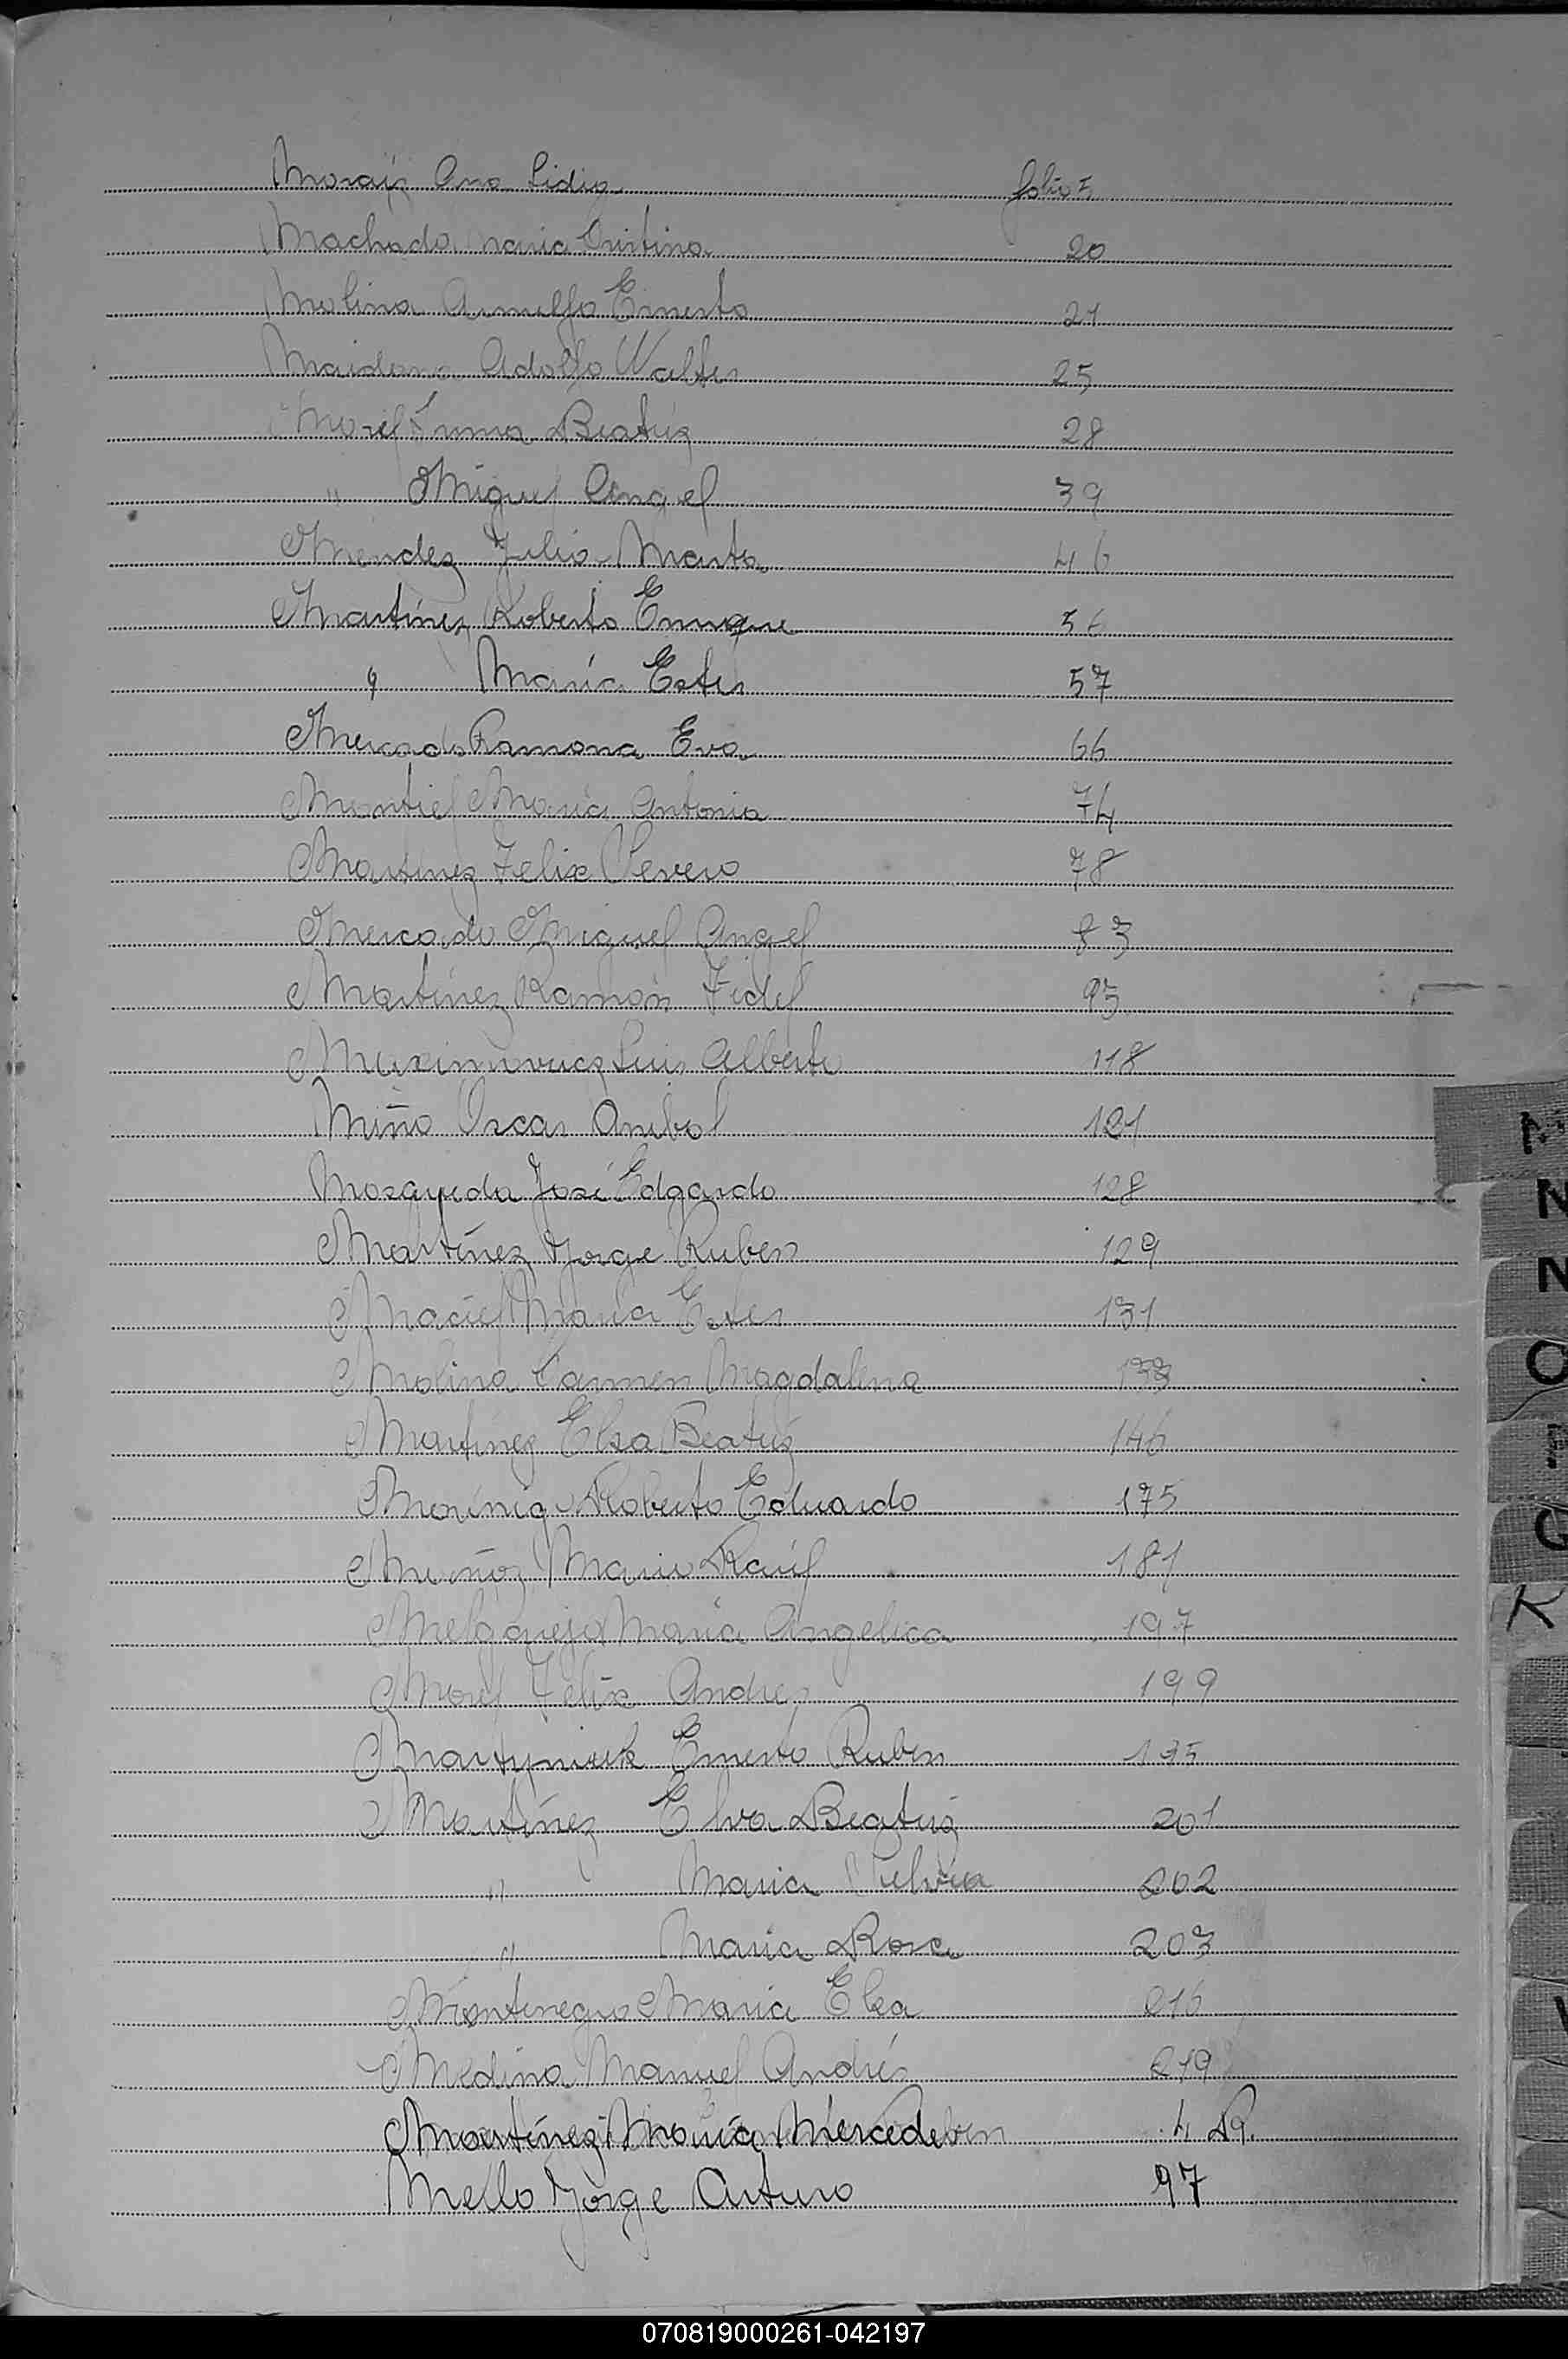 Moraiz Ana Lidia folio 5
Machado Maria Cristina 20
Molina Arnulfo Ernesto 21
Maidana Adolfo Walter 25
Morel Irma Beatriz 28
" Miguel Angel 39
Mendez Julia Marta 46
Martínez Roberto Enrique 56
" María Ester 57
Mercado Ramona Eva 66
Montiel María Antonia 74
Martinez Felix Severo 78
Mercado Miguel Angel 83
Martínez Ramón Fidel 93
Luis Alberto 118
Miño Oscar Anibal 121
Mosqueda José Edgardo 128
Martínez Jorge Ruben 129
Maciel María Ester 131
Molina Carmen Magdalena 133
Martínez Elsa Beatriz 146
Morínigo Roberto Eduardo 175
Muñoz Mario Raúl 181
Melgarejo María Angelica 197
Morel Felix Andres 199
Martyniuk Ernesto Ruben 195
Martínez Elva Beatriz 201
" Maria Silvia 202
" Maria Rosa 203
Montenegro Maria Elsa 216
Medina Manuel Andrés 219
Martínez María Mercedes 4
Mello Jorge Arturo 97
M
N
N
O
Q
K
070819000261-042197